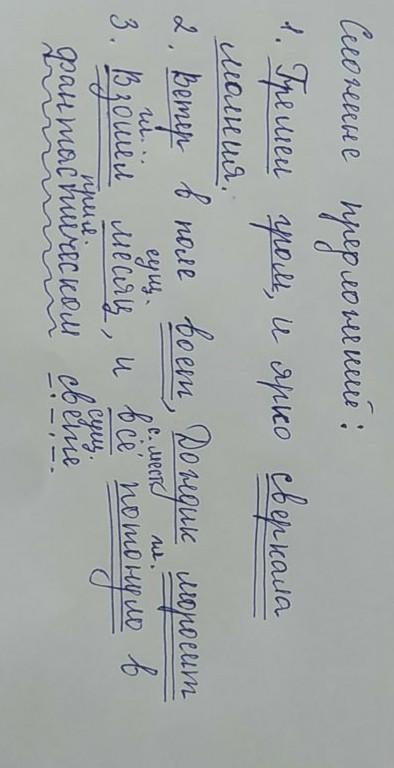 Сложные предложений:
1. Гремел гром, и ярко сверкала
молния.
2. Ветер в поле воет, Дождик моросит
гл. сущ. с. мест гл.
3. Взошел месяц, и всё потонуло в
прил. сущ.
фантастическом свете.